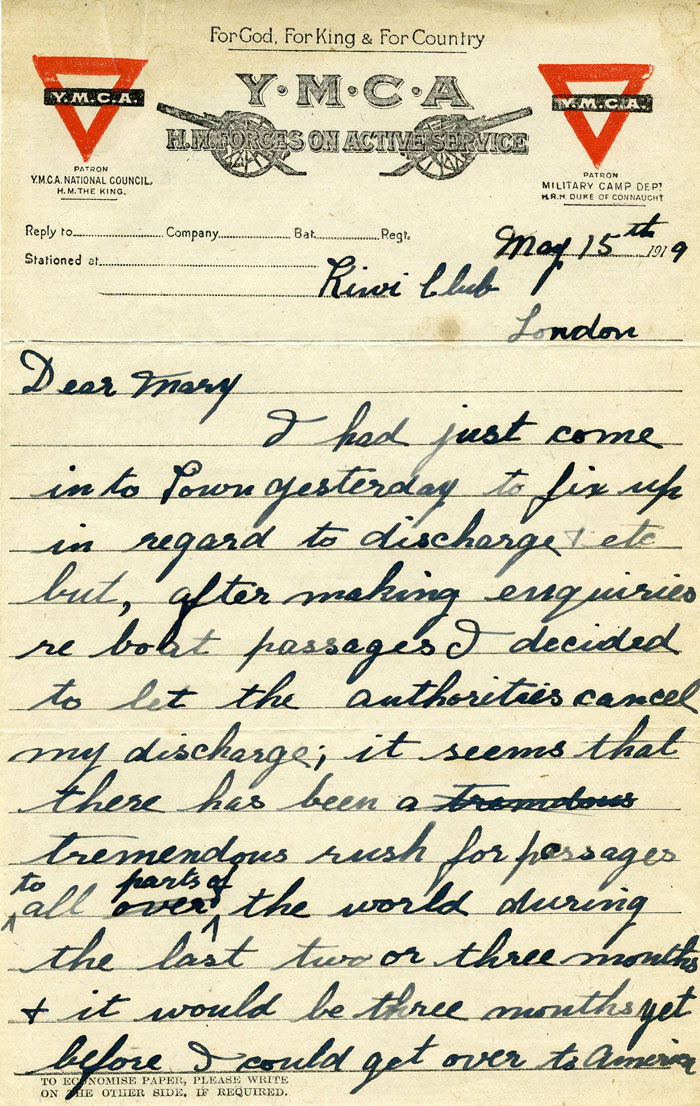 For God, For King & For Country
Y·M·C·A
H.M. FORCES ON ACTIVE SERVICE
Y.M.C.A.
PATRON
Y.M.C.A. NATIONAL COUNCIL,
H.M. THE KING.
Y.M.C.A.
PATRON
MILITARY CAMP DEPT
H.R.H. DUKE OF CONNAUGHT
Reply to Company Bat. Regt. May 15th 1919
Stationed at Kiwi Club
London
Dear Mary
I had just come
in to Town yesterday to fix up
in regard to discharge & etc
but, after making enquiries
re boat passages I decided
to let the authorities cancel
my discharge; it seems that
there has been a tremdous
tremendous rush for passages
to all over parts of the world during
the last two or three months
& it would be three months yet
before I could get over to America
TO ECONOMISE PAPER, PLEASE WRITE
ON THE OTHER SIDE, IF REQUIRED.